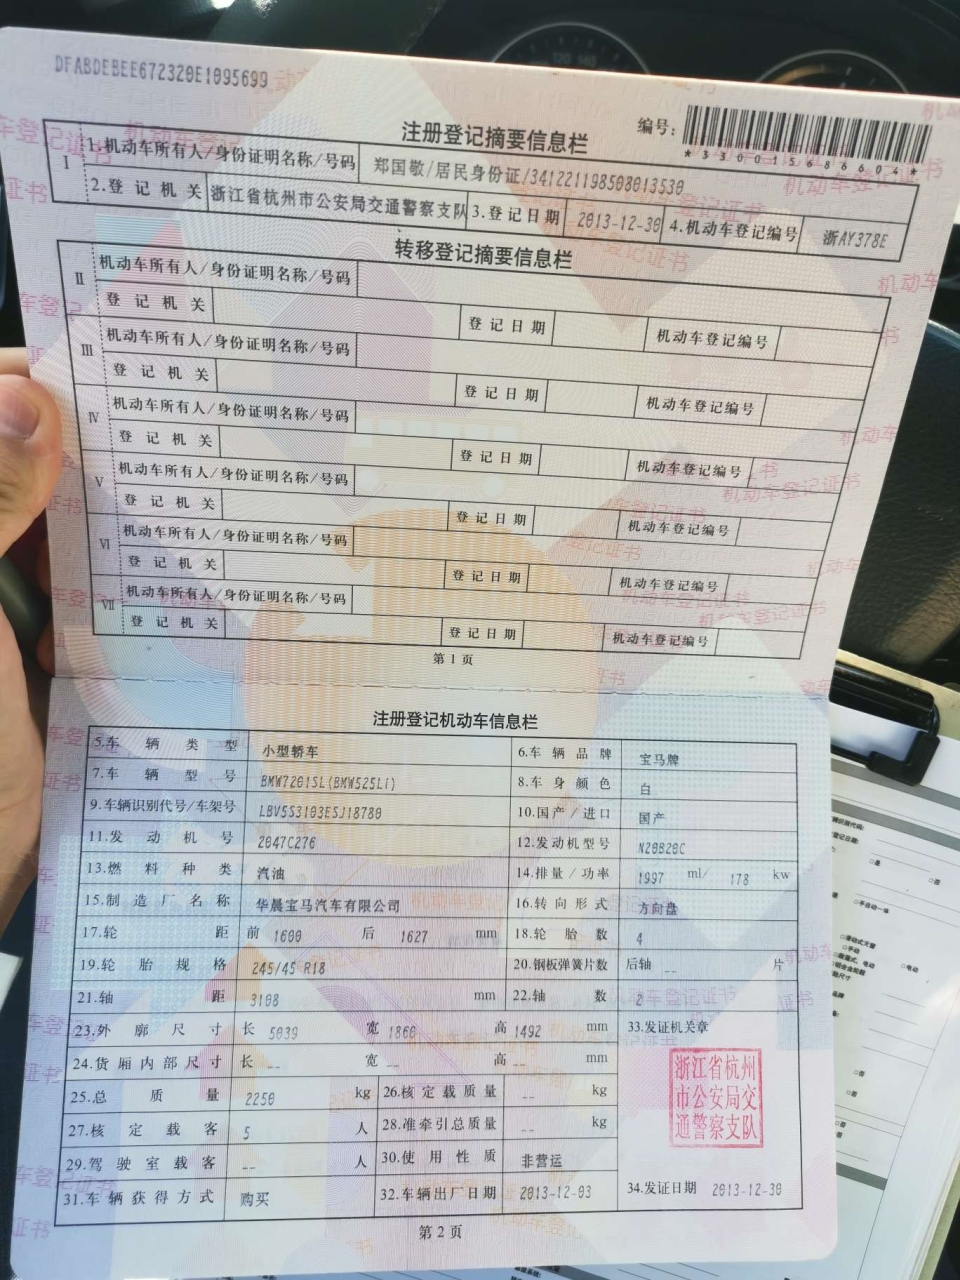 DFABDEBEE672320E1095699
注册登记摘要信息栏
编号:
*330015686604*
I 1.机动车所有人/身份证明名称/号码 郑国敬/居民身份证/341221198508013530
2.登记机关 浙江省杭州市公安局交通警察支队 3.登记日期 2013-12-30 4.机动车登记编号 浙AY378E
转移登记摘要信息栏
II 机动车所有人/身份证明名称/号码
登记机关 登记日期 机动车登记编号
III 机动车所有人/身份证明名称/号码
登记机关 登记日期 机动车登记编号
IV 机动车所有人/身份证明名称/号码
登记机关 登记日期 机动车登记编号
V 机动车所有人/身份证明名称/号码
登记机关 登记日期 机动车登记编号
VI 机动车所有人/身份证明名称/号码
登记机关 登记日期 机动车登记编号
VII 机动车所有人/身份证明名称/号码
登记机关 登记日期 机动车登记编号
第1页
注册登记机动车信息栏
5.车辆类型 小型轿车 6.车辆品牌 宝马牌
7.车辆型号 BMW7201SL(BMW525Li) 8.车身颜色 白
9.车辆识别代号/车架号 LBV5S3103ESJ18780 10.国产/进口 国产
11.发动机号 2047C276 12.发动机型号 N20B20C
13.燃料种类 汽油 14.排量/功率 1997 ml/ 178 kw
15.制造厂名称 华晨宝马汽车有限公司 16.转向形式 方向盘
17.轮距 前 1600 后 1627 mm 18.轮胎数 4
19.轮胎规格 245/45 R18 20.钢板弹簧片数 后轴 -- 片
21.轴距 3108 mm 22.轴数 2
23.外廓尺寸 长 5039 宽 1860 高 1492 mm 33.发证机关章
24.货厢内部尺寸 长 -- 宽 -- 高 -- mm
浙江省杭州
市公安局交
通警察支队
25.总质量 2250 kg 26.核定载质量 -- kg
27.核定载客 5 人 28.准牵引总质量 -- kg
29.驾驶室载客 -- 人 30.使用性质 非营运
31.车辆获得方式 购买 32.车辆出厂日期 2013-12-03 34.发证日期 2013-12-30
第2页